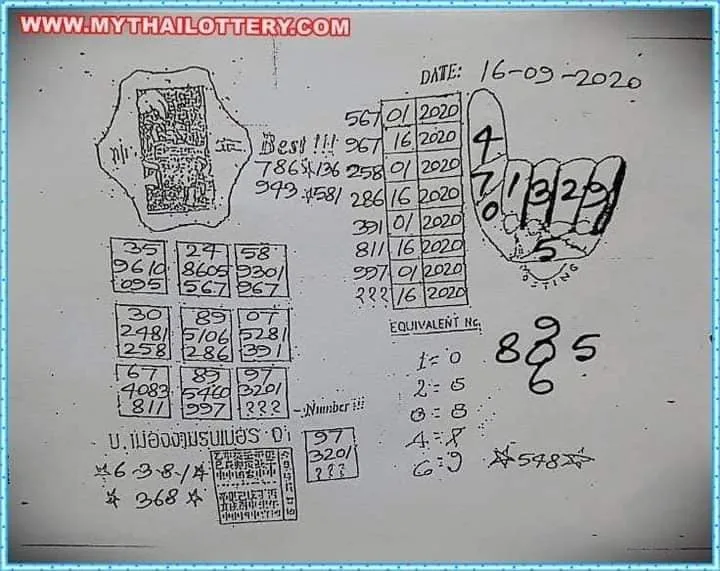 WWW.MYTHAILOTTERY.COM
DATE: 16-09-2020
567 01 2020
967 16 2020
258 01 2020
286 16 2020
391 01 2020
811 16 2020
997 01 2020
??? 16 2020
Best !!!
786☆136
943☆581
4
7
0
1 3 2 9
5
35 24 58
9610 8605 9301
095 567 967
30 89 07
2481 5106 5281
258 286 391
67 89 97
4083 5460 3201
811 997 ???
Number !!!
97
3201
???
EQUIVALENT NO.
1=0
2=5
3=8
4=8
6=9
9
8 8 5
6
☆548☆
☆6-3-8-1☆
☆ 368 ☆